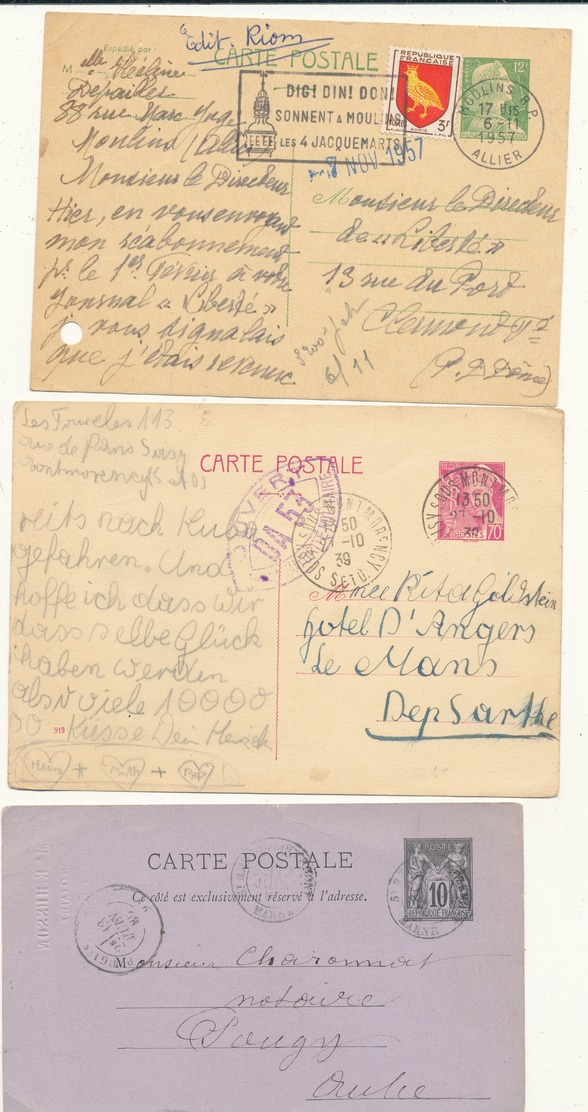 Edit. Riom
CARTE POSTALE
Expédié par :
M elle Hélène
Defailler
88 rue Marc
Moulins
DIG! DIN! DON!
SONNENT A MOULINS
LES 4 JACQUEMARTS
REPUBLIQUE
FRANÇAISE
AUNIS
3F
12F
MOULINS R.P.
17 H15
6-11
1957
ALLIER
NOV 1957
Monsieur le Directeur
Hier, en vous envoyant
mon réabonnement
pr. le 1er Février à votre
Journal « Liberté »
je vous signalais
que j'étais
6/11
Monsieur le Directeur
de « Liberté »
13 rue du Port
Clermont Fd
(P. D Dôme)
Les Tourelles 113
rue de Paris Soisy
Montmorency
CARTE POSTALE
OUVERT
DA 53
SOISY SOUS MONTMORENCY
50
-10
39
SETO
13 50
-10
39
POSTES
70c
nach
gefahren. Und
hoffe ich dass wir
dasselbe Glück
haben werden
also viele 10000
00 Küsse Dein
919
Mme Rita Goldstein
Hôtel D'Angers
Le Mans
Dep Sarthe
CARTE POSTALE
Ce côté est exclusivement réservé à l'adresse.
POSTE
10
REPUBLIQUE FRANÇAISE
MARNE
MARNE
Monsieur Charonnat
notaire
Pougy
Aube